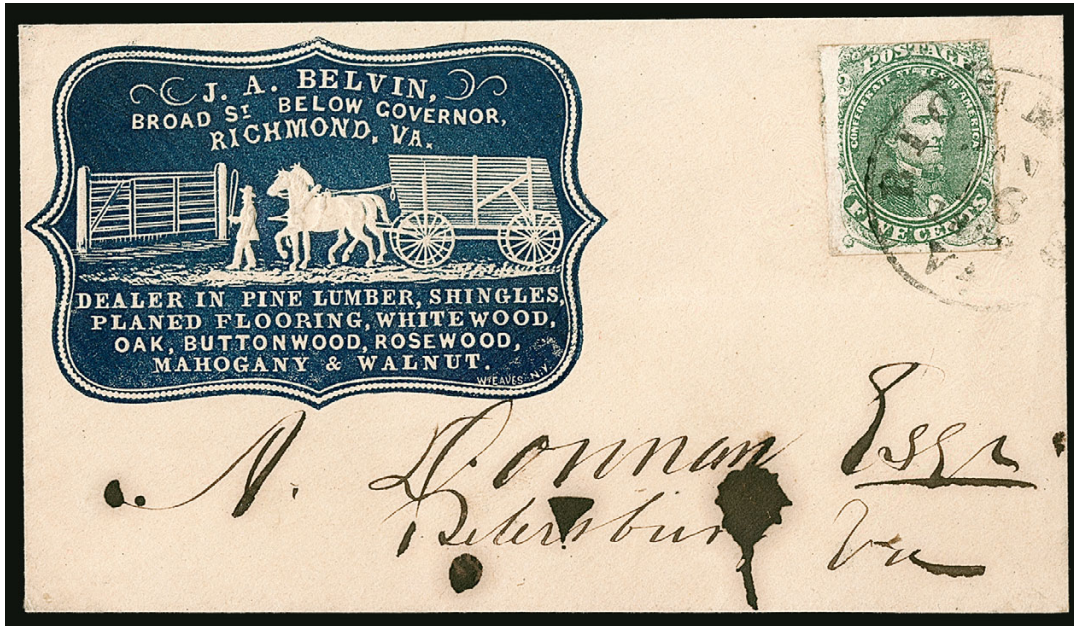 J. A. BELVIN,
BROAD ST BELOW GOVERNOR,
RICHMOND, VA.
DEALER IN PINE LUMBER, SHINGLES,
PLANED FLOORING, WHITEWOOD,
OAK, BUTTONWOOD, ROSEWOOD,
MAHOGANY & WALNUT.
POSTAGE
CONFEDERATE STATES OF AMERICA
FIVE CENTS
N. Donnan Esqr
Petersburg Va